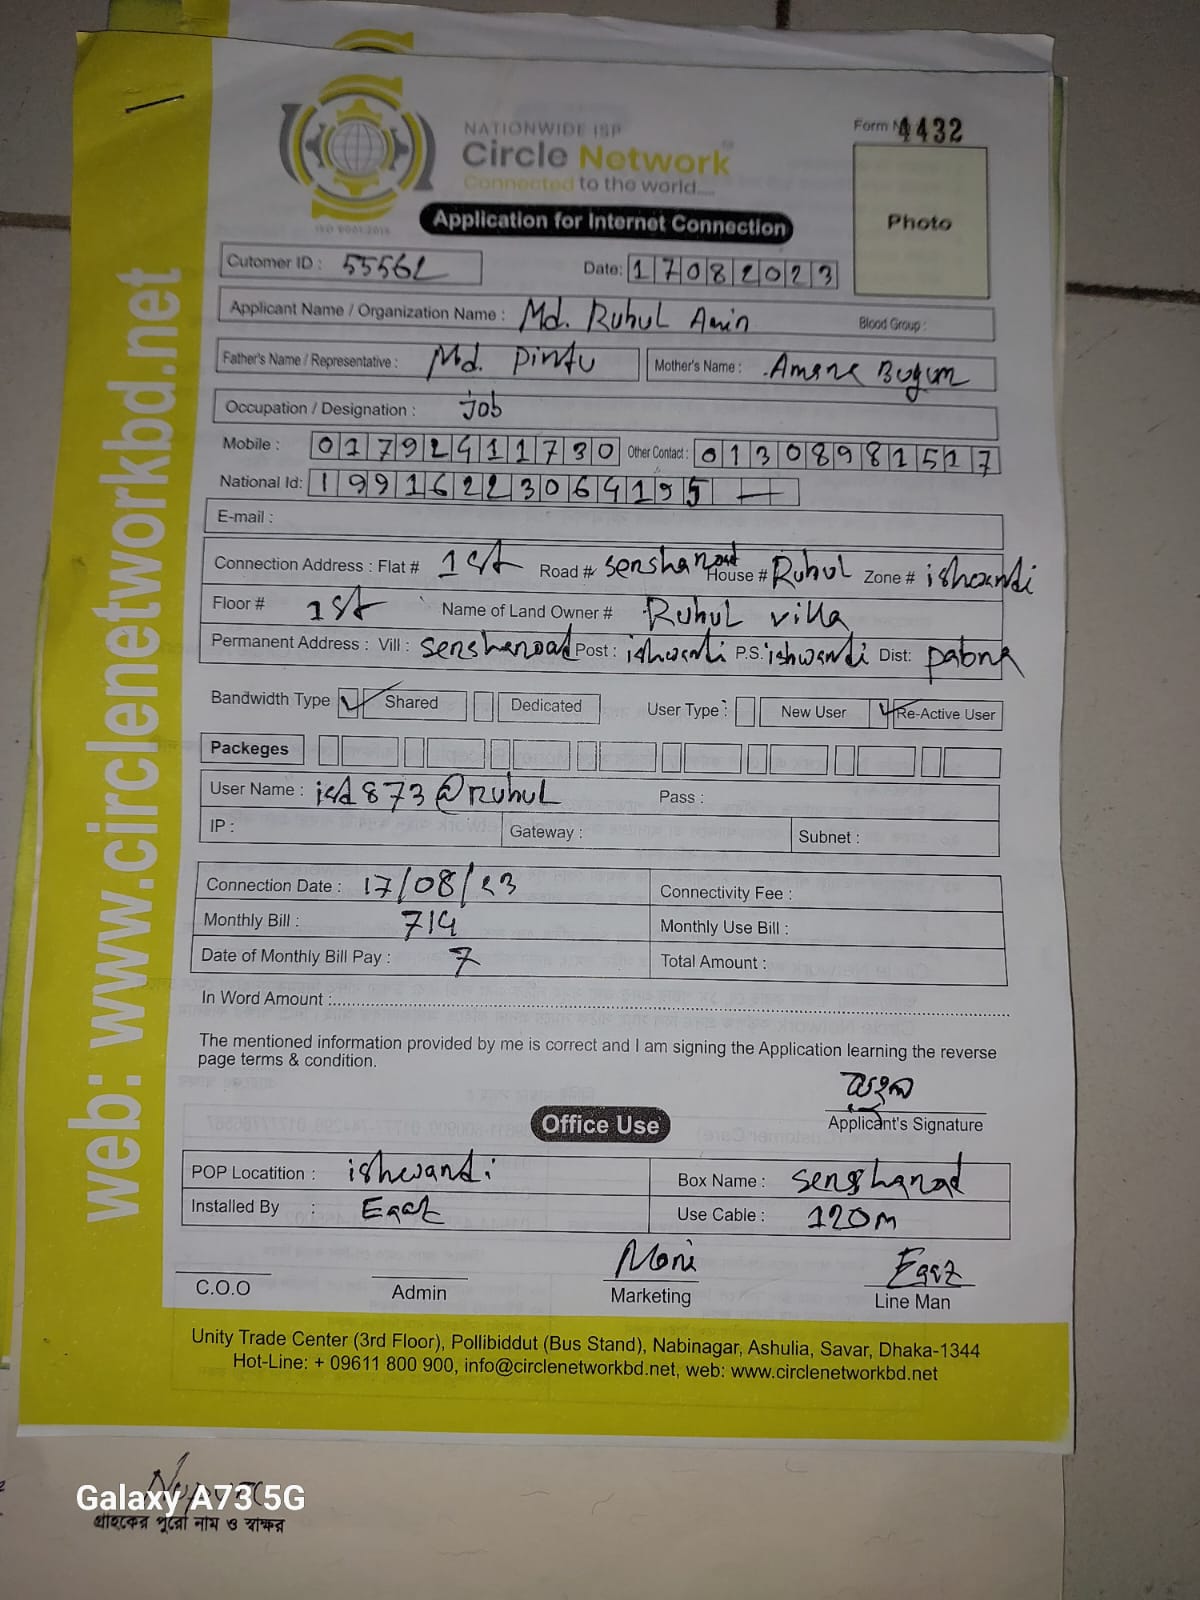 NATIONWIDE ISP
Circle Network
Connected to the world.....
ISO 9001:2015
Form N 4432
Photo
Application for Internet Connection
Cutomer ID : 55562 Date: 17082023
Applicant Name / Organization Name : Md. Ruhul Amin Blood Group :
Father's Name / Representative : Md. Pintu Mother's Name : Amena Begum
Occupation / Designation : Job
Mobile : 01792411730 Other Contact : 01308981517
National Id: 19916223064195
E-mail :
Connection Address : Flat # 1st Road # senshanoad House # Ruhul Zone # ishwardi
Floor # 1st Name of Land Owner # Ruhul villa
Permanent Address : Vill : senshanoad Post : ishwardi P.S. ishwardi Dist: pabna
Bandwidth Type Shared Dedicated User Type : New User Re-Active User
Packeges
User Name : isd873@ruhul Pass :
IP : Gateway : Subnet :
Connection Date : 17/08/23 Connectivity Fee :
Monthly Bill : 714 Monthly Use Bill :
Date of Monthly Bill Pay : 7 Total Amount :
In Word Amount :
The mentioned information provided by me is correct and I am signing the Application learning the reverse
page terms & condition.
Applicant's Signature
Office Use
POP Locatition : ishwardi Box Name : senshanad
Installed By : Use Cable : 120m
C.O.O Admin Moni Marketing Line Man
Unity Trade Center (3rd Floor), Pollibiddut (Bus Stand), Nabinagar, Ashulia, Savar, Dhaka-1344
Hot-Line: + 09611 800 900, info@circlenetworkbd.net, web: www.circlenetworkbd.net
web: www.circlenetworkbd.net
Galaxy A73 5G
গ্রাহকের পুরো নাম ও স্বাক্ষর